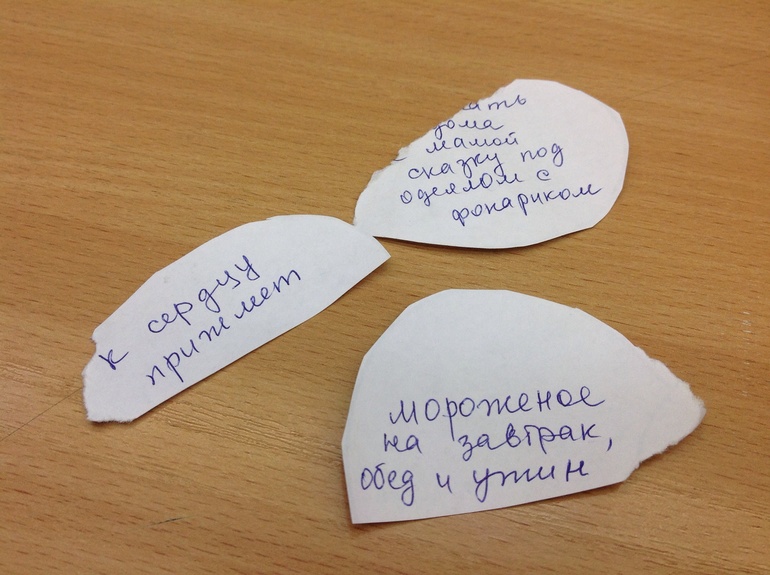 дома
с мамой
сказку под
одеялом с
фонариком
к сердцу
прижмет
мороженое
на завтрак,
обед и ужин